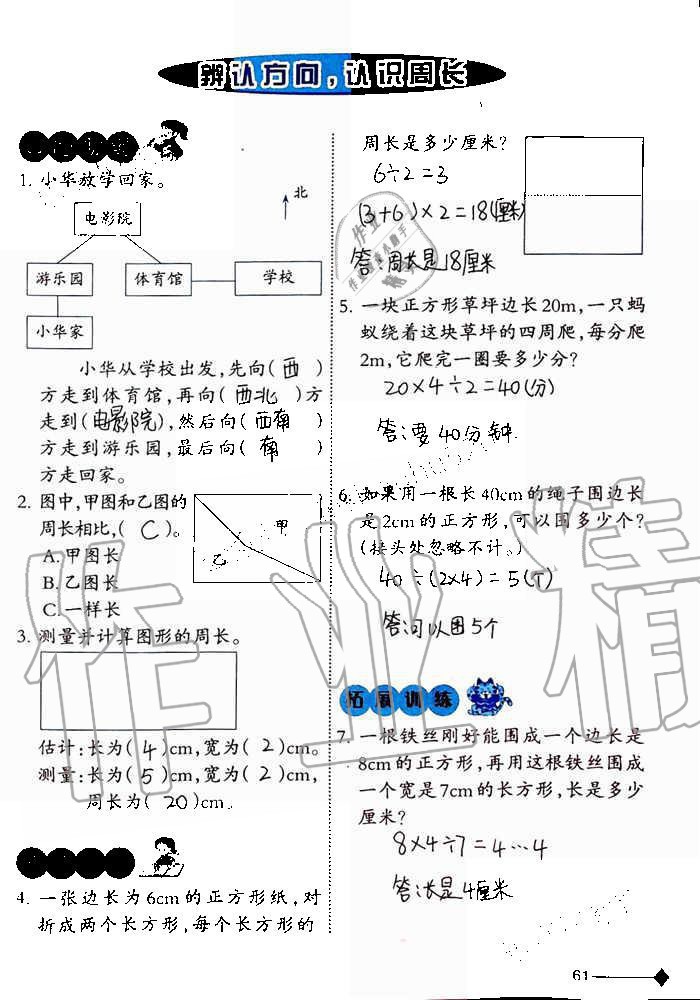 辨认方向,认识周长
1. 小华放学回家。
北
电影院
游乐园
体育馆
学校
小华家
小华从学校出发,先向(西)
方走到体育馆,再向(西北)方
走到(电影院),然后向(西南)
方走到游乐园,最后向(南)
方走回家。
2. 图中,甲图和乙图的
周长相比,(C)。
A. 甲图长
B. 乙图长
C. 一样长
甲
乙
3. 测量并计算图形的周长。
估计:长为(4)cm,宽为(2)cm。
测量:长为(5)cm,宽为(2)cm,
周长为(20)cm.
4. 一张边长为6cm的正方形纸,对
折成两个长方形,每个长方形的
周长是多少厘米?
6÷2=3
(3+6)×2=18(厘米)
答:周长是18厘米
5. 一块正方形草坪边长20m,一只蚂
蚁绕着这块草坪的四周爬,每分爬
2m,它爬完一圈要多少分?
20×4÷2=40(分)
答:要40分钟.
6. 如果用一根长40cm的绳子围边长
是2cm的正方形,可以围多少个?
(接头处忽略不计。)
40÷(2×4)=5(个)
答:可以围5个
拓展训练
7. 一根铁丝刚好能围成一个边长是
8cm的正方形,再用这根铁丝围成
一个宽是7cm的长方形,长是多少
厘米?
8×4÷7=4…4
答:长是4厘米
61
作业精